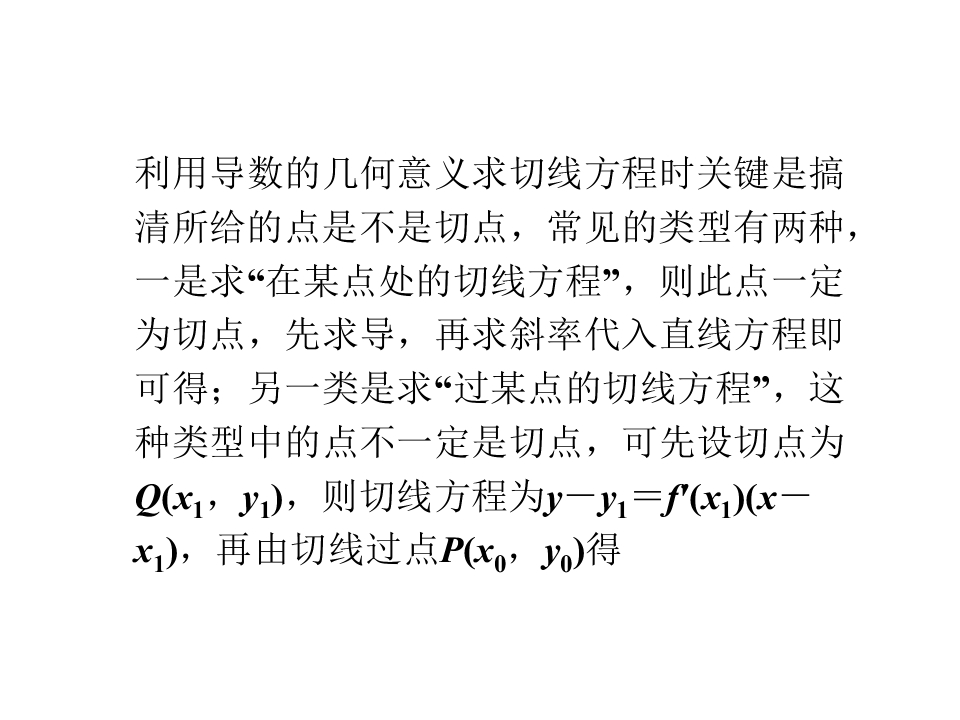 利用导数的几何意义求切线方程时关键是搞
清所给的点是不是切点，常见的类型有两种，
一是求“在某点处的切线方程”，则此点一定
为切点，先求导，再求斜率代入直线方程即
可得；另一类是求“过某点的切线方程”，这
种类型中的点不一定是切点，可先设切点为
Q(x₁，y₁)，则切线方程为y－y₁＝f′(x₁)(x－
x₁)，再由切线过点P(x₀，y₀)得